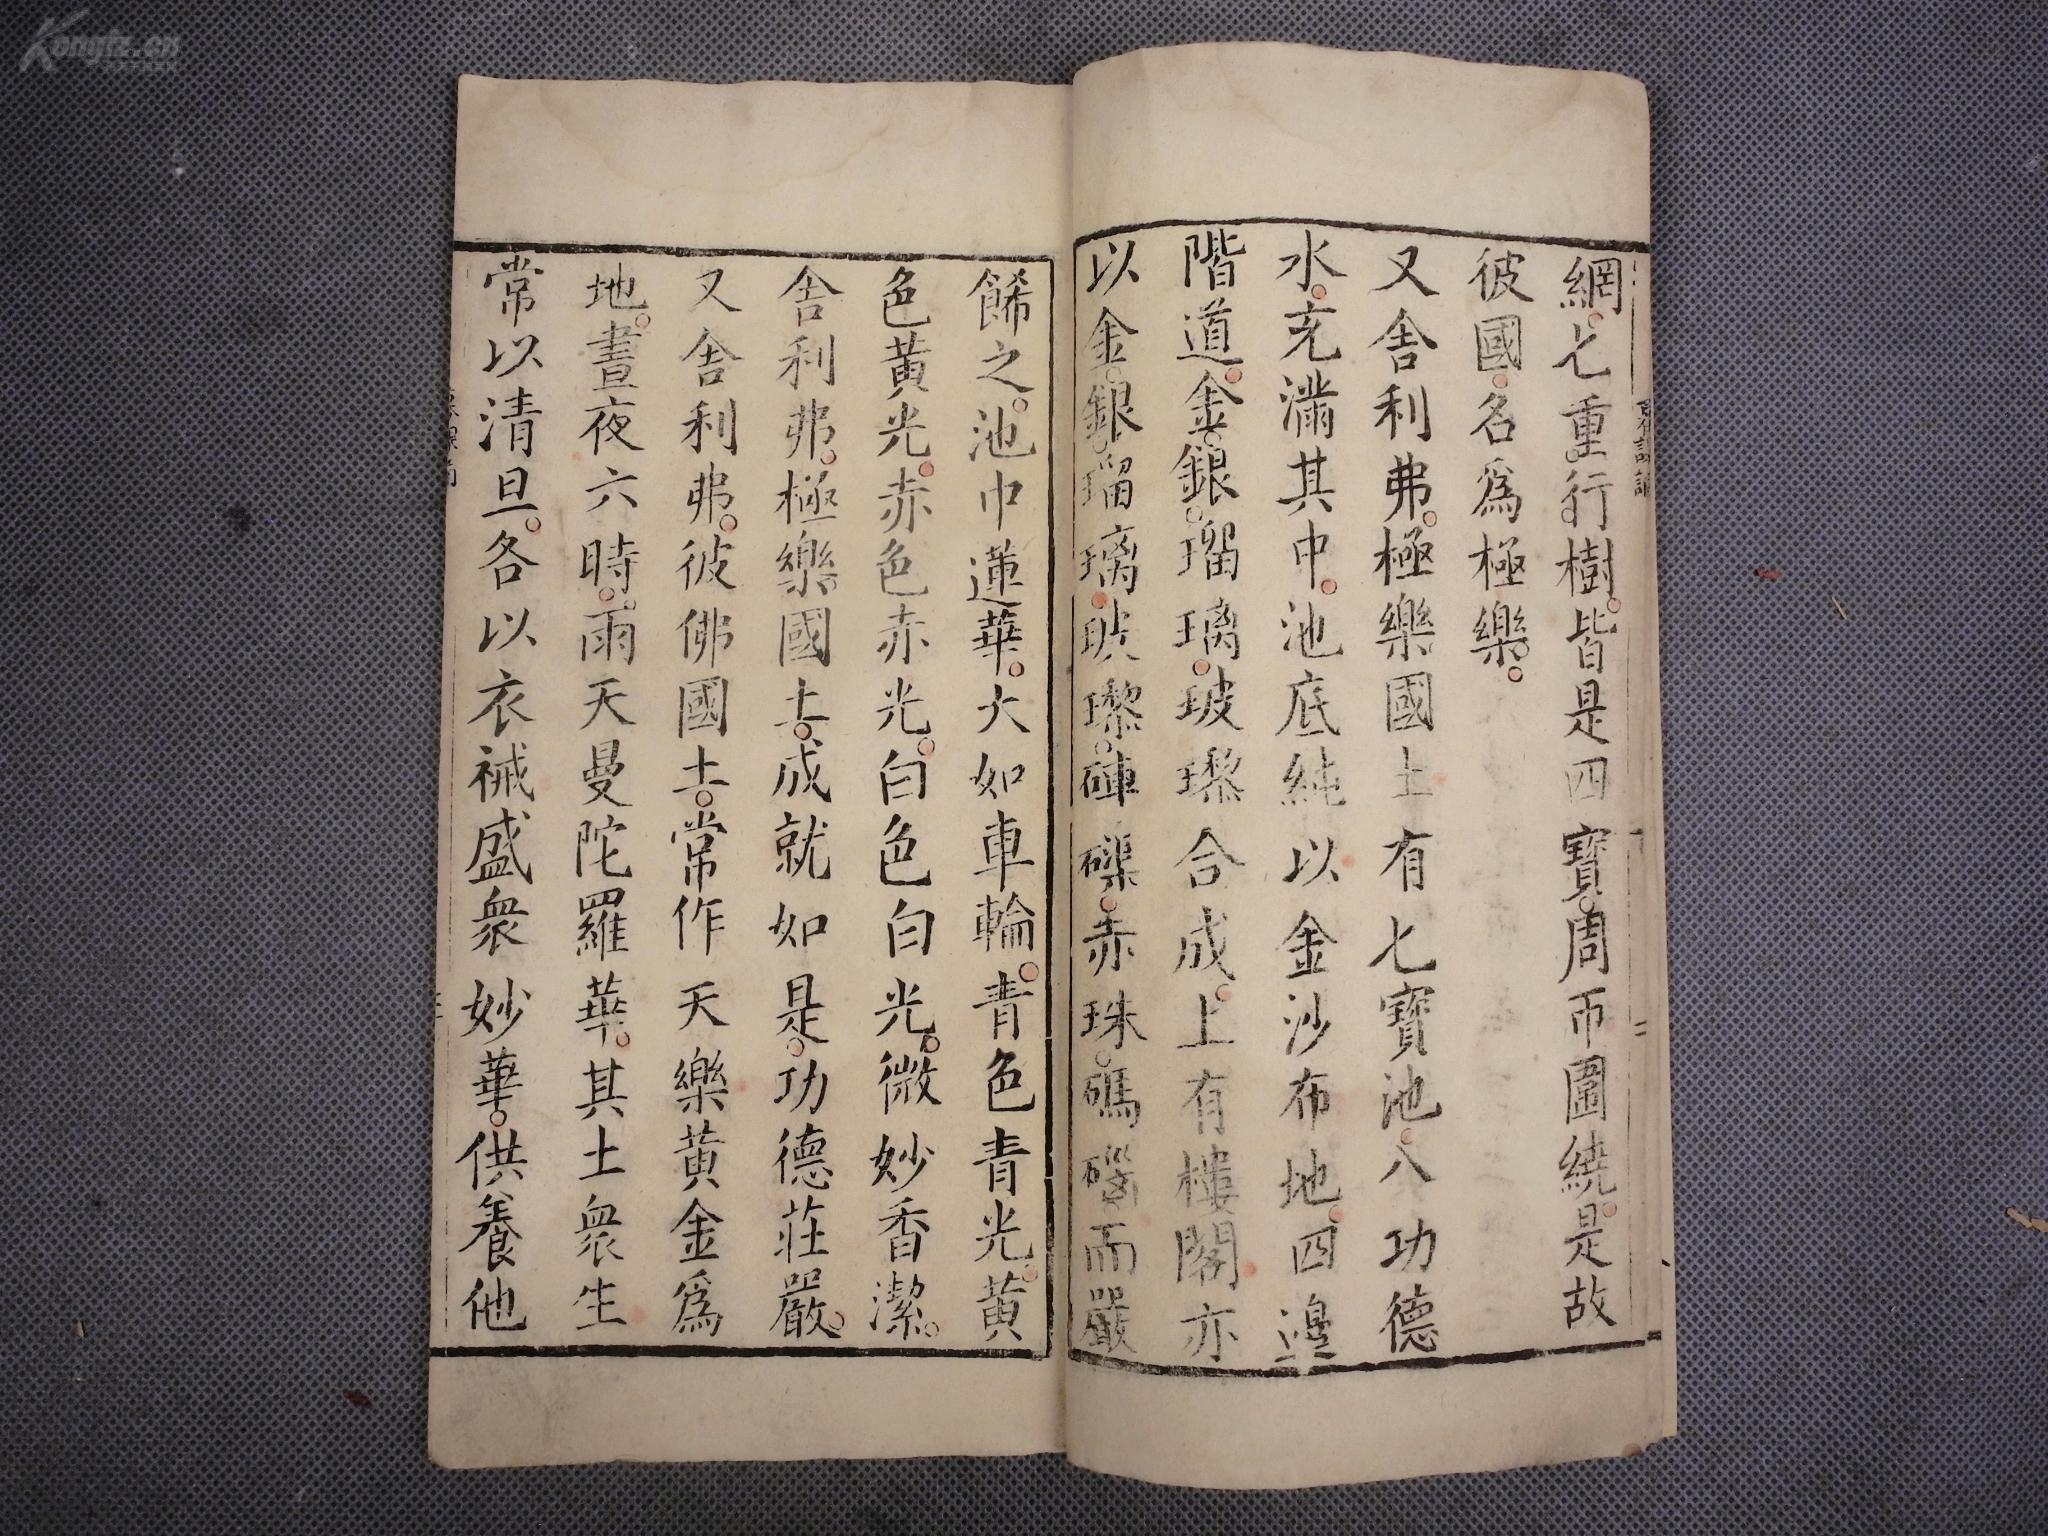 網。七重。行。樹。皆是四寶。周帀圍繞。是故
彼國。名為極樂。
又舍利弗。極樂國土。有七寶池。八功德
水。充滿其中。池底純以。金沙布地。四邊
階道。金。銀。瑠璃。玻瓈合成。上有樓閣。亦
以金。銀。瑠璃。玻瓈。硨磲。赤珠。碼碯。而嚴
餙之。池中蓮華。大如車輪。青色青光。黃
色黃光。赤色赤光。白色白光。微妙香潔。
舍利弗。極樂國土。成就如是。功德莊嚴。
又舍利弗。彼佛國土。常作天樂。黃金爲
地。晝夜六時。雨天曼陀羅華。其土衆生。
常以清旦。各以衣裓。盛衆妙華。供養他
二
Kongfz.cn